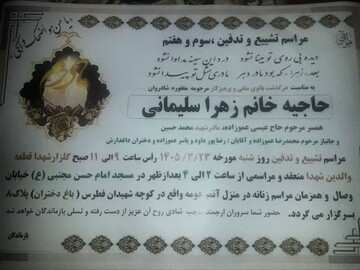 یا من هو الف کل شی
مراسم تشییع و تدفین ،سوم و هفتم
دیده بی روی تو بینا نشود
در این سینه مداوا نشود
بعد زهرا که بود مادر دهر
مادری مثل تو پیدا نشود
به مناسبت درگذشت بانوی متقی و پرهیزکار مرحومه مغفوره شادروان
حاجیه خانم زهرا سلیمانی
همسر مرحوم حاج عیسی عموزاده، مادرشهید محمد حسین
و جانباز مرحوم محمدرضا عموزاده و آقایان : رضا پور داود و یاسر عموزاده و دختران داغدارش
مراسم تشییع و تدفین روز شنبه مورخه ۱۴۰۵/۳/۲۳ رأس ساعت ۹ الی ۱۱ صبح گلزارشهدا قطعه
والدین شهدا منعقد و مراسمی از ساعت ۲ الی ۴ بعدازظهر در مسجد امام حسن مجتبی (ع) خیابان
وصال و همزمان مراسم زنانه در منزل آنمرحومه واقع در کوچه شهیدان فطرس ( باغ دختران) پلاک۸
برگزار می گردد.
حضور شما سروران ارجمند موجب شادی روح آن عزیز از دست رفته و تسلی بازماندگان خواهد شد
بازماندگان